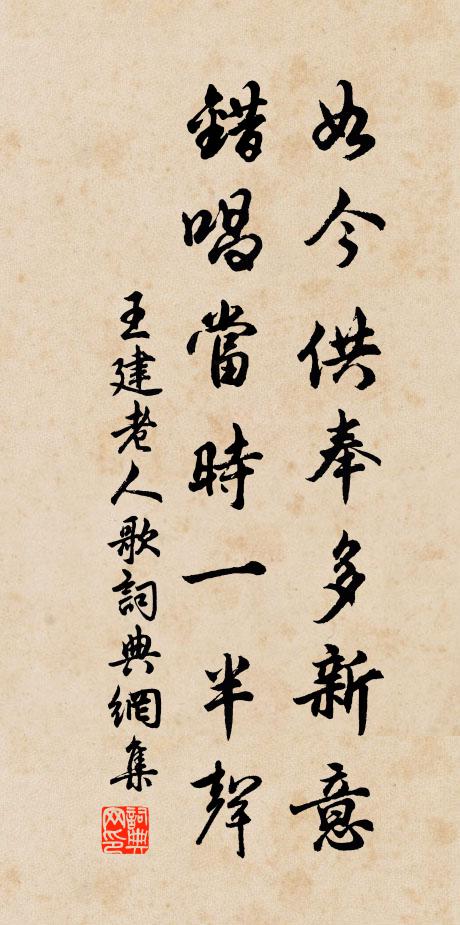 如今供奉多新意
錯唱當時一半聲
王建老人歌詞典網集
詞典网印